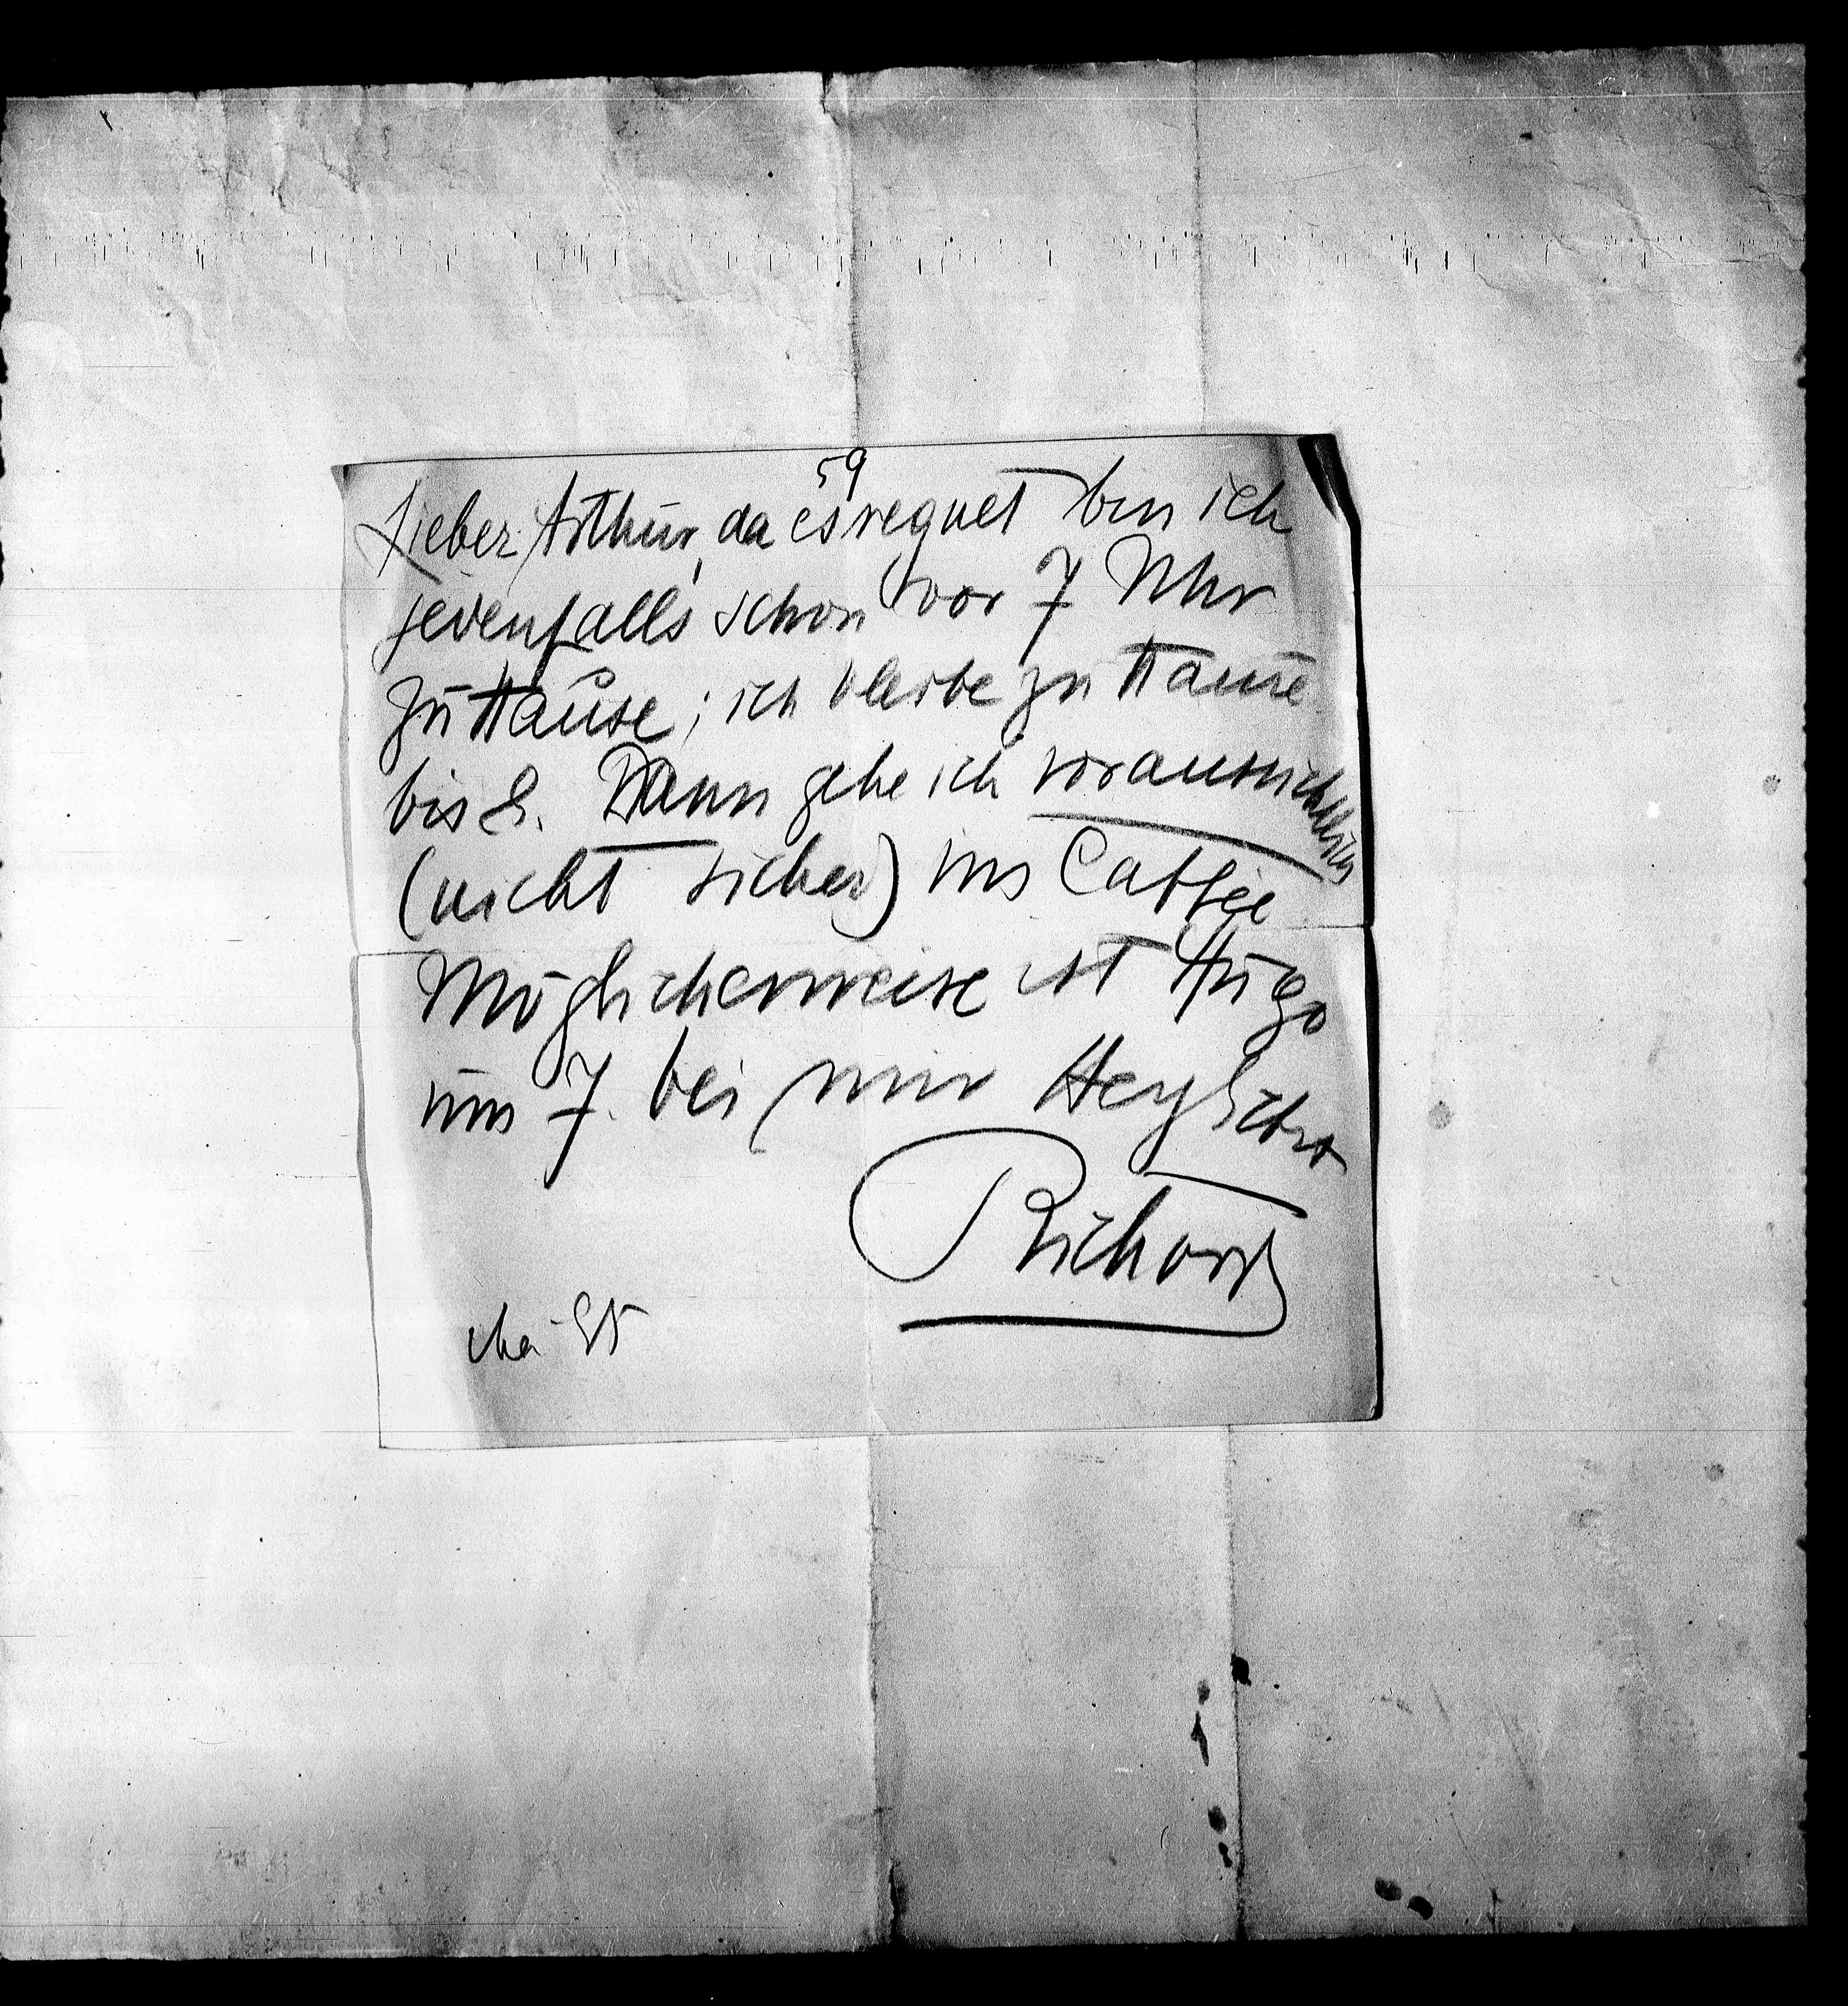 59
Lieber Arthur, da es regnet bin ich
jedenfalls schon vor 7 Uhr
zu Hause; ich bleibe zu Hause
bis 8. Dann gehe ich voraussichtlich
(nicht sicher) ins Caffée
Möglicherweise ist Hugo
um 7 bei mir Herzlichst
Richard
Mai 95